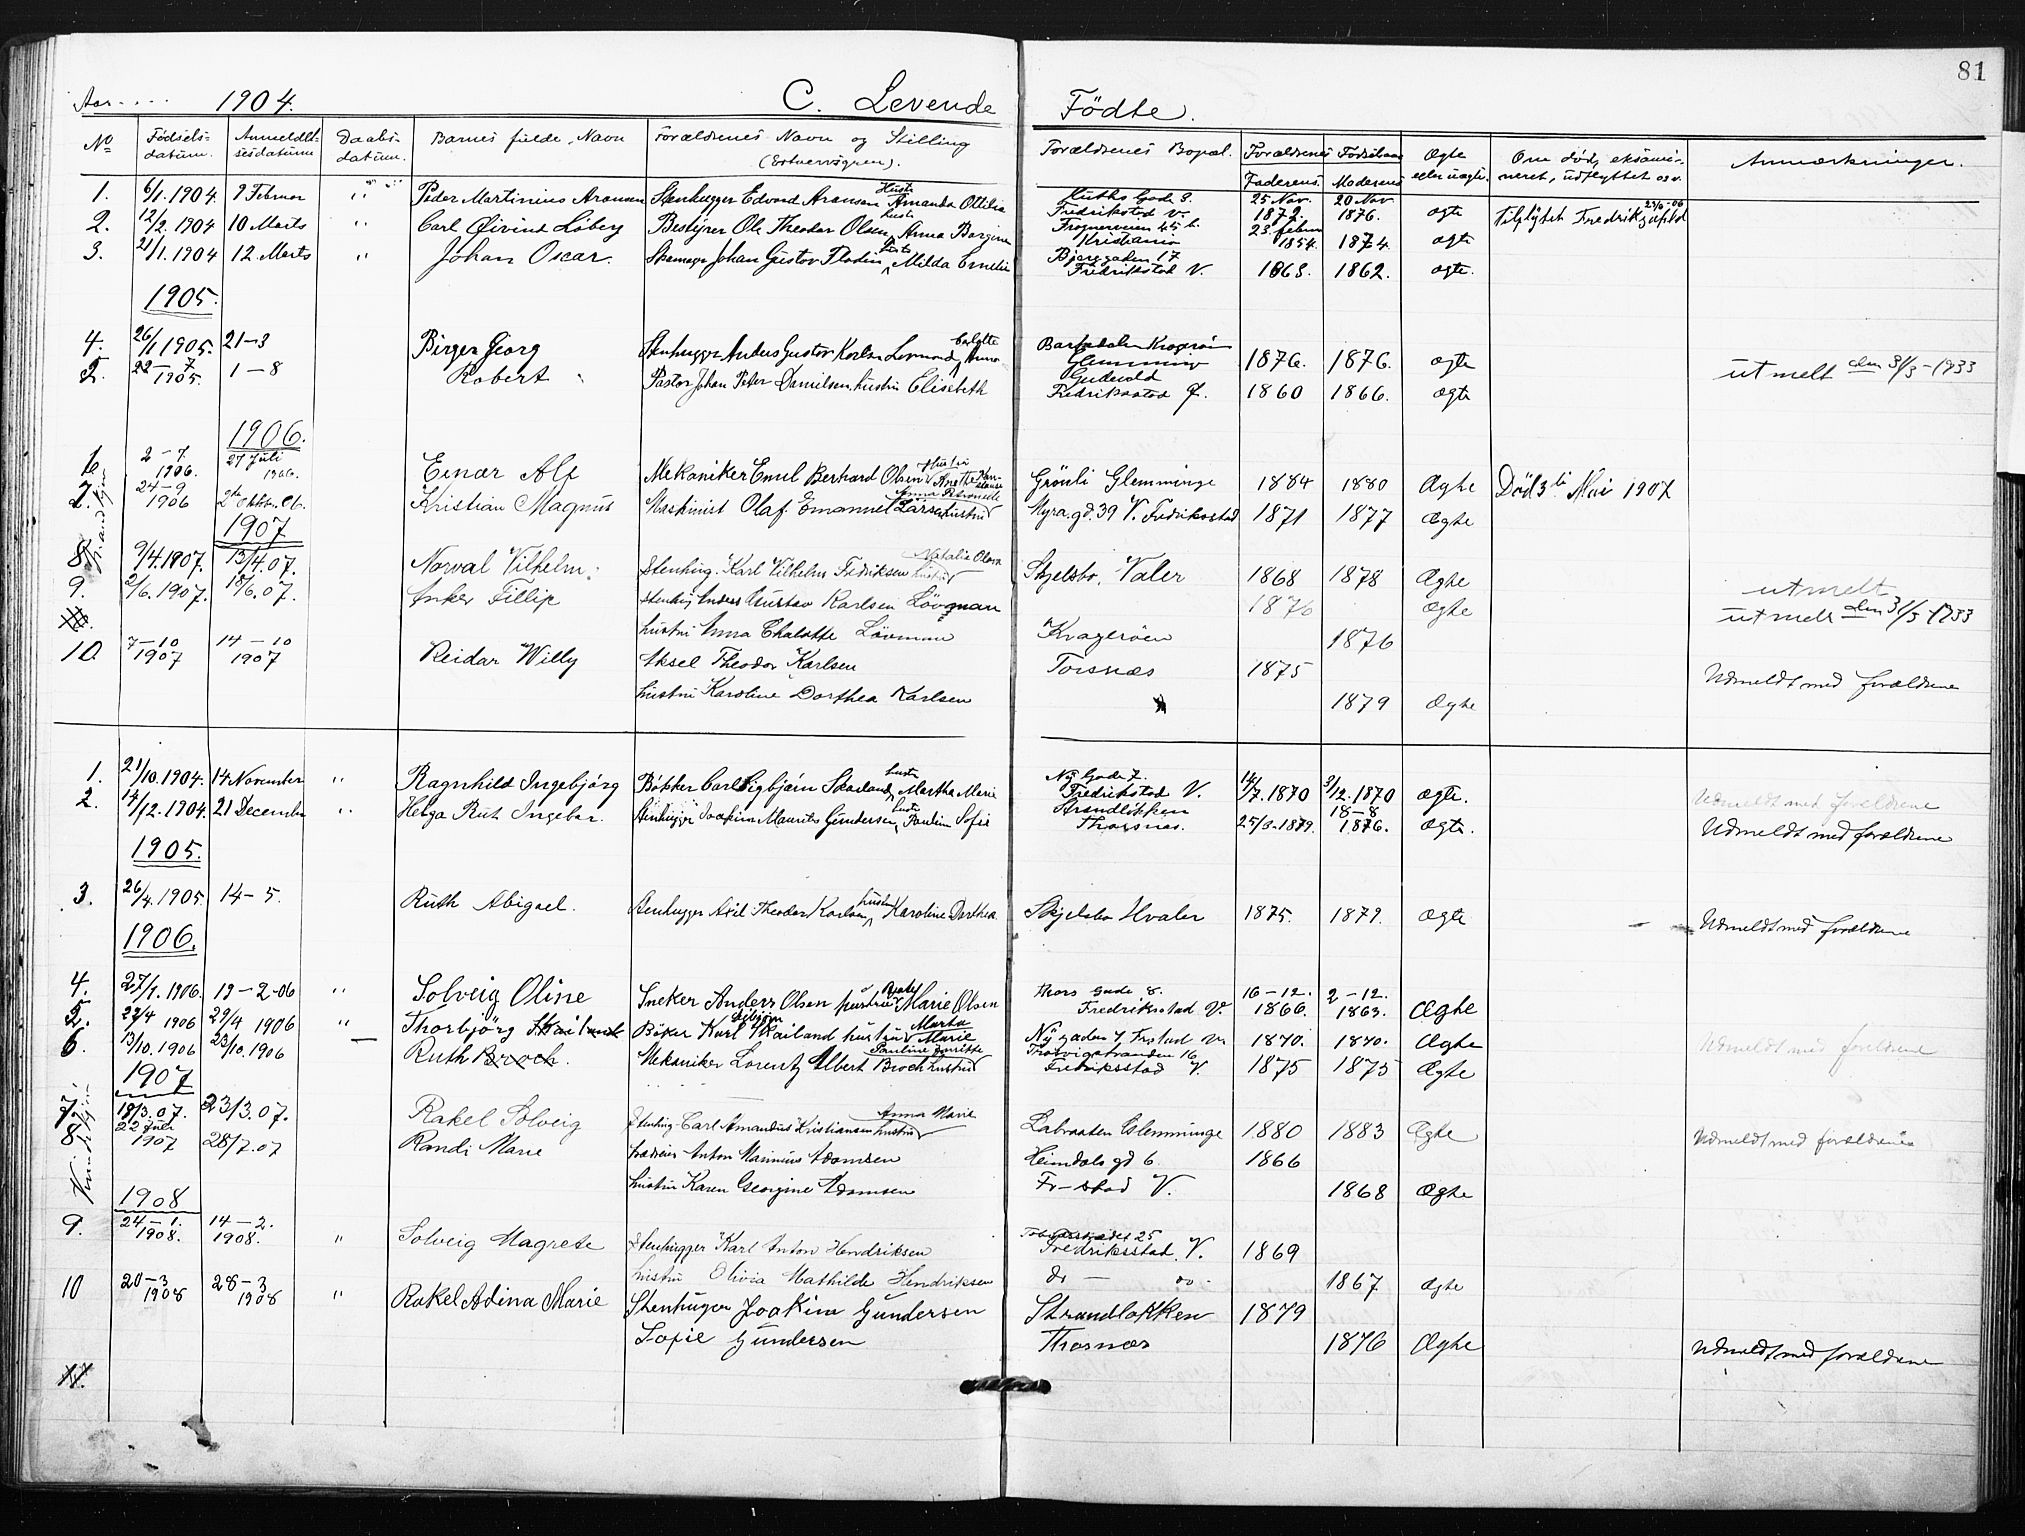 81
Aar . . . . 1904. C. Levende Födte.
No Fødsels- datum. Anmeldel- sesdatum Daabs- datum. Barnets fulde Navn Forældrenes Navn og Stilling (Erhvervsgren). Forældrenes Bopæl. Forældrenes Fødselsaar Faderens Moderens Ægte eller uægte. Om død, eksami- neret, udflyttet osv. Anmærkninger.
1. 6/1 1904. 9 Februar " Peder Martinius Aronsen Stenhugger Edvard Aronsen Hustr Amanda Ottilia Huths Gade 8. Fredrikstad V. 25 Nov. 1872. 20 Nov 1876. ægte Tilflyttet Fredrikshald
2. 12/2 1904 10 Marts Carl Øivind Löberg Bestyrer Ole Theodor Olsen, hustr Anna Bergine Frognerveien 45 b. Kristiania 23. febru 1854. 1874. ægte
3. 21/1. 1904 12. Marts " Johan Oscar. Skomager Johan Gustav Flodin, Hustr Milda Emelie Bjerggaden 17 Fredrikstad V. 1863. 1862. ægte.
1905.
4. 26/1 1905. 21-3 Birger Georg Stenhugger Anders Gustav Karlsen Lovmand, Anna Carlotte Glemminge 1876. 1876. ægte
5. 22-7 1905. 1-8 Robert Pastor Johan Peter Danielsen, hustru Elisabeth Gudevold Fredrikstad Ø. 1860 1866. ægte utmelt den 31/3-1933
1906.
6. 2-7. 1906. 27 Juli 1906. Einar Alf Mekaniker Emil Bernhard Olsen Hustru Anethe Grönli Glemminge 1884 1880 Ægte Död 3die Mai 1907
7. 24-9 1906 Kristian Magnus Maskinist Olaf Emanuel Larsen hustru Anna Petronelle Myra.gd. 39 V. Fredrikstad 1871 1877 Ægte
1907
8. 9/4.1907. 13/4.07. Norval Vilhelm. Stenhug. Karl Vilhelm Fredriksen hustru Natalie Olava Skjelsbo, Valer 1868 1878 Ægte
9. 2/6. 1907. 18/6. 07. Anker Fillip Stenhug Anders Gustav Karlsen Lövgnan 1876 Ægte utmelt
hustru Anna Chalotte Lövmann Kragerøen 1876 utmelt den 31/3-1933
10. 7-10 1907 14-10 1907 Reidar Willy Aksel Theodor Karlsen Torsnæs 1875 Udmeldt med forældrene
hustru Karoline Dorthea Karlsen 1879 Ægte
1. 21/10. 1904. 14. November " Ragnhild Ingebjörg Bökker Carl Sigbjørn Skailand, hustr Martha Marie Ny Gade 7. Fredrikstad V. 14/7.1870 3/12.1870 ægte. Udmeldt med forældrene
2. 14/12. 1904. 21 Decembr " Helga Rut Ingebor. Stenhugger Joakim Maurits Gundersen, hustr Paulin Sofie Strandløkken Thorsnæs. 25/3.1879. 18-8 1876. ægte. Udmeldt med forældrene
1905.
3. 26/4. 1905 14-5. Ruth Abigael. Stenhugger Axel Theodor Karlsen, hustru Karoline Dorthea Skjelsbo Hvaler 1875. 1879. ægte Udmeldt med forældrene
1906.
4. 27/1. 1906. 19-2-06 " Solveig Oline Sneker Anders Olsen hustru Marie Olsen Thors Gade 8. Fredriksstad V. 16-12. 1866. 2-12. 1863. Ægte
5. 22/4 1906 29/4 1906 " Thorbjörg Skailand Böker Karl Sigbjörn Skailand hustru Marta Marie Ny gaden 7, Frstad V. 1870. 1870. Ægte Udmeldt med forældrene
6. 13/10. 1906 23/10. 1906 Ruth Broch. Mekaniker Lorentz Albert Broch hustru Fredriksstad V. 1875 1875 Ægte
1907
7. 18/3. 07. 23/3. 07. Rakel Solveig Stenhug. Carl Amandus Kristiansen hustru Anna Marie Labraaten Glemminge 1880 1883 Ægte Udmeldt med forældrene
8 22 Juli 1907 28/7.07 Randi Marie Anton Marinius Adamsen Heimdals gd 6. 1866
hustru Karen Georgine Adamsen Fr-stad V. 1868 Ægte
1908
9. 24-1. 1908. 14-2. 1908. " Solveig Magrete Stenhugger Karl Anton Hendriksen 25 Fredriksstad. V. 1869
hustru Olivia Mathilde Hendriksen do - do- 1867 Ægte
10 20-3 1908 28-3 1908 " Rakel Adina Marie Stenhuger Joakim Gundersen Strandløkken 1879
Sofie Gundersen Thorsnæs 1876 Ægte Udmeldt med forældrene
11.